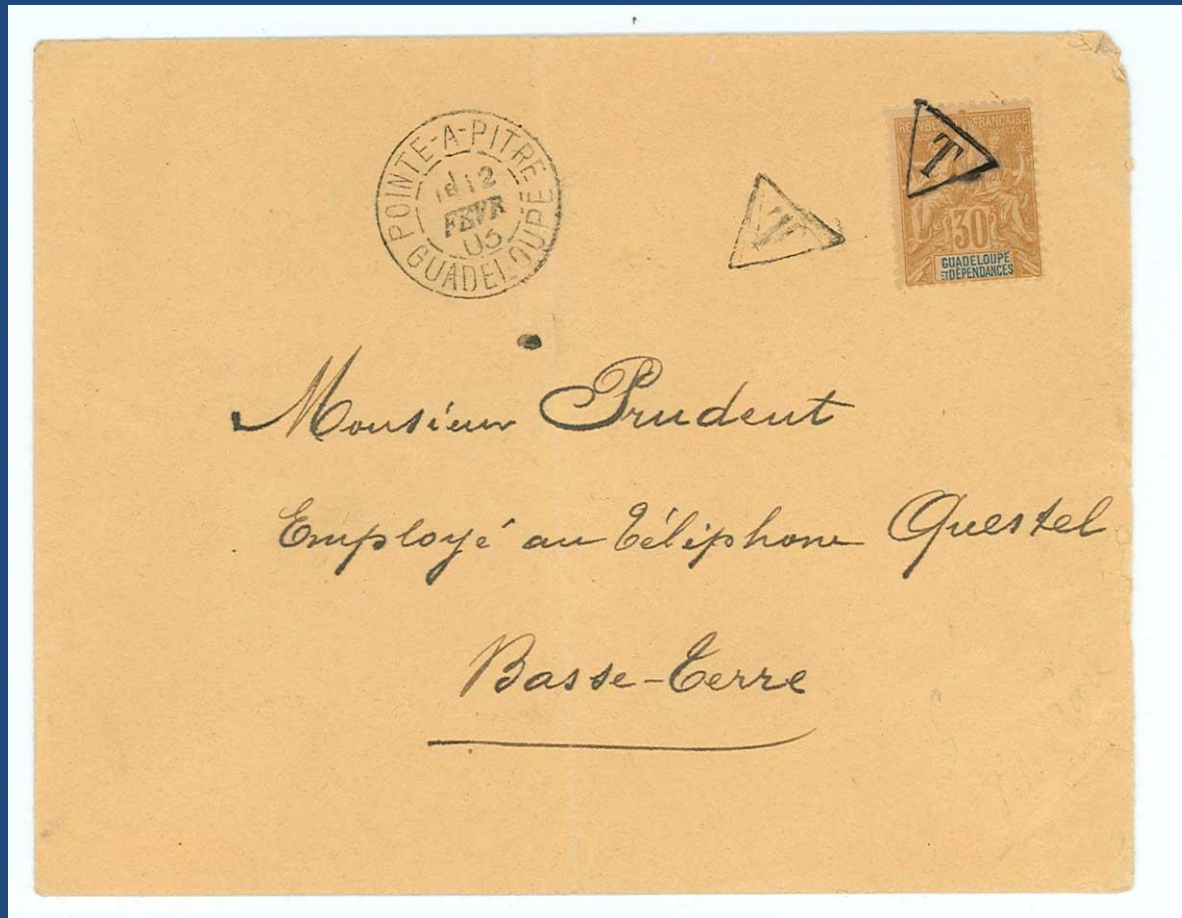 POINTE-A-PITRE
12
FEVR
05
GUADELOUPE
T
T
REPUBLIQUE FRANÇAISE
30
GUADELOUPE
ET DÉPENDANCES
Monsieur Prudent
Employé au Téléphone Questel
Basse-Terre